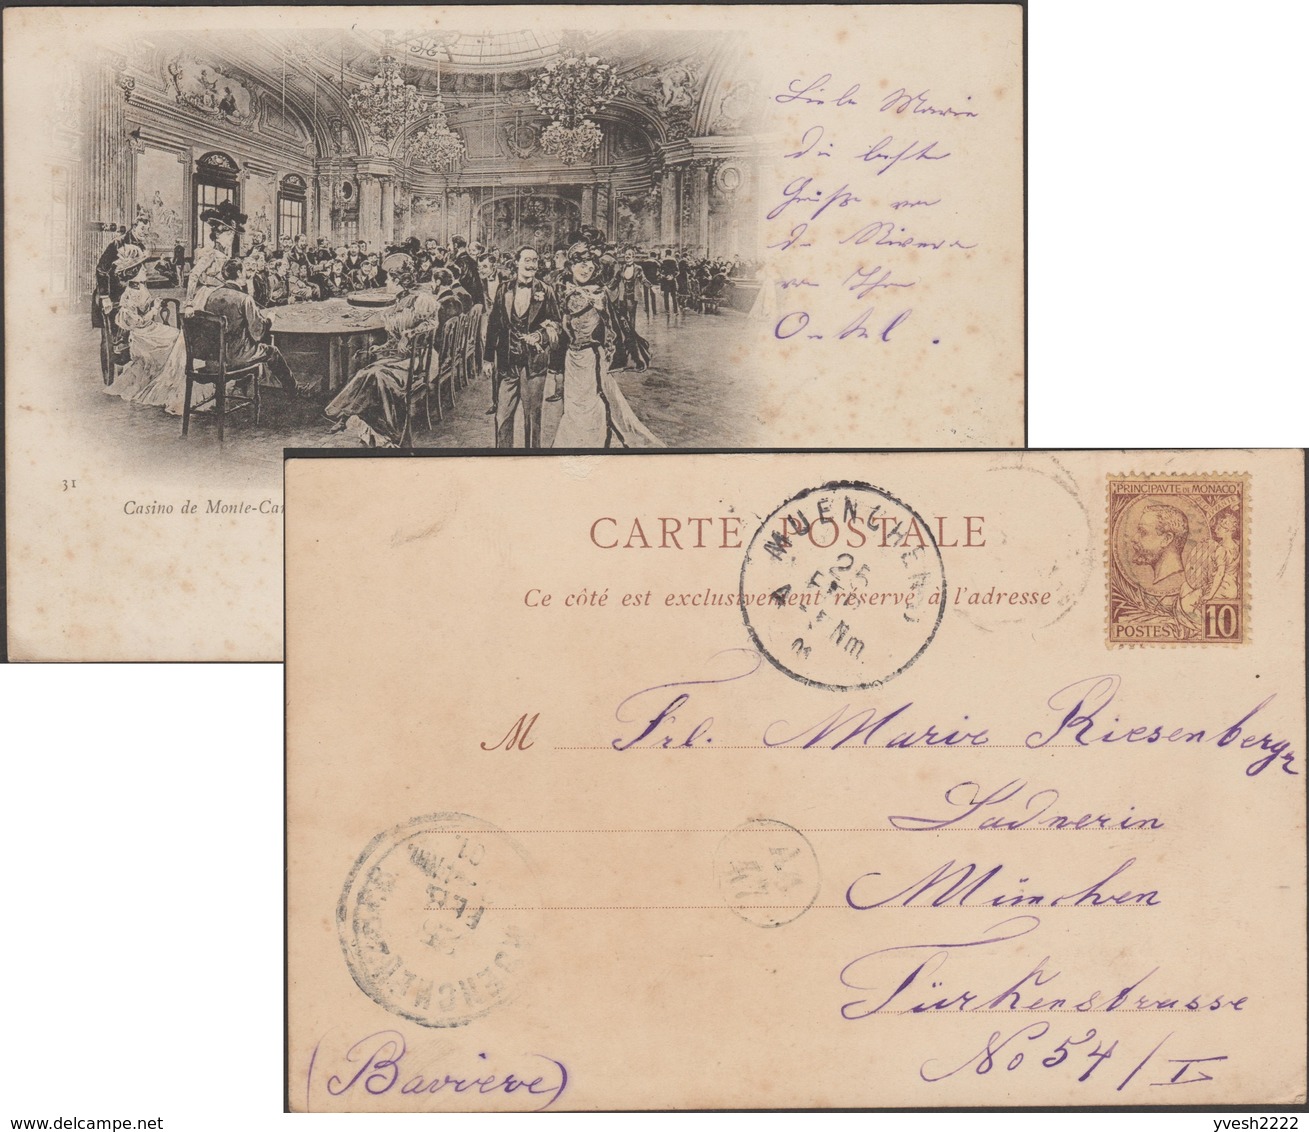 Liebe Marie
die besten
Grüße von
der Riviera
von Ihrem
Onkel.
31
Casino de Monte-Car
CARTE POSTALE
Ce côté est exclusivement réservé à l'adresse
MUENCHEN
25
FEB
Nm.
PRINCIPAVTE DE MONACO
POSTES 10
M Frl. Marie Riesenberger
Ladnerin
München
Türkenstrasse
No 54/I
(Baviere)
25
FEB
01
yvesh2222